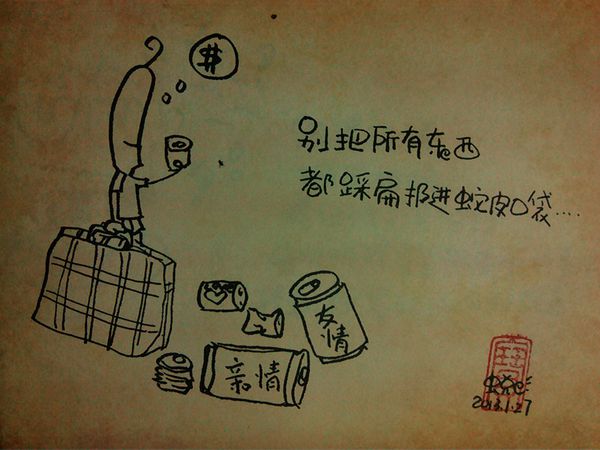 $
别把所有东西
都踩扁扔进蛇皮口袋....
友情
亲情
2013.1.27